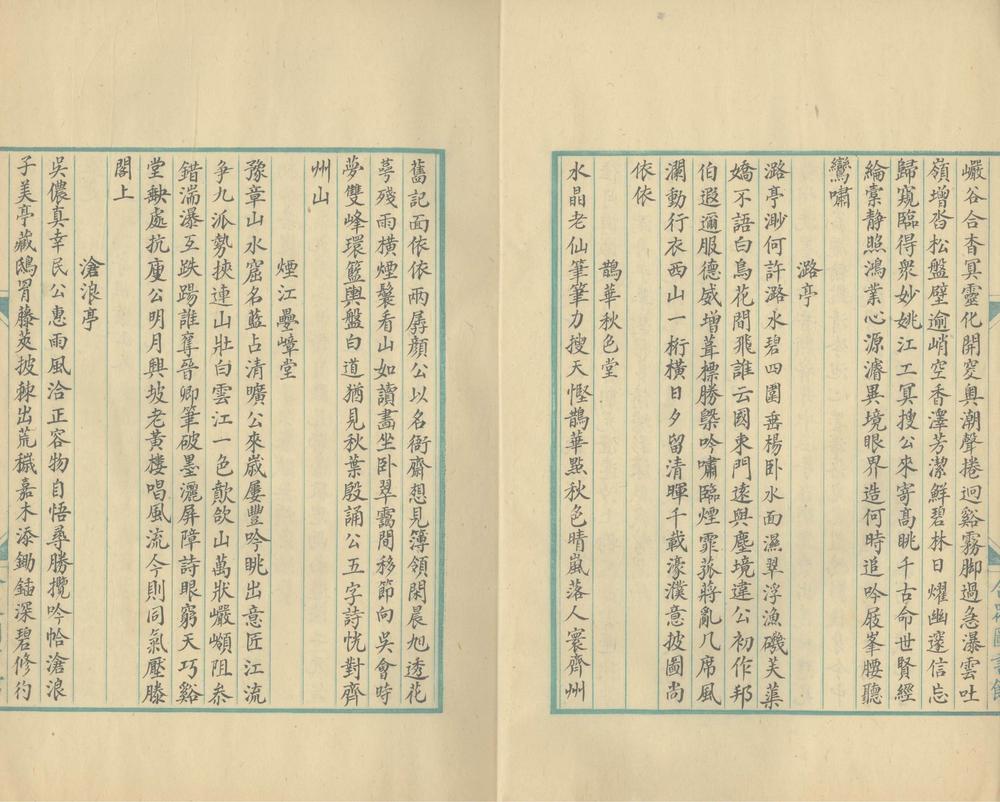 巖谷合杳冥靈化開窔奥潮聲捲迴谿霧脚過急瀑雲吐
嶺增沓松盤壁逾峭空香澤芳潔鮮碧林日耀幽邃信忘
歸窺臨得衆妙姚江工冥搜公來寄高眺千古命世賢經
綸橐静照鴻業心源濬異境眼界造何時追吟屐峯腰聽
鸞嘯
潞亭
潞亭渺何許潞水碧四圍垂楊卧水面濕翠浮漁磯芙蕖
嬌不語白鳥花間飛誰云國東門遠與塵境違公初作邦
伯遐邇服德威增葺標勝槩吟嘯臨煙霏菰蔣亂几席風
瀾動行衣西山一桁橫日夕留清暉千載濠濮意披圖尚
依依
鵲華秋色堂
水晶老仙筆筆力搜天慳鵲華點秋色晴嵐落人寰齊州
舊記面依依兩孱顔公以名衙齋想見簿領閑晨旭透花
萼殘雨橫煙鬟看山如讀畵坐卧翠靄間移節向吳會時
夢雙峰環籃輿盤白道猶見秋葉殷誦公五字詩恍對齊
州山
煙江疊嶂堂
豫章山水窟名藍占清曠公來歲屢豐吟眺出意匠江流
爭九派勢挾連山壯白雲江一色歕欱山萬狀巖嶺阻叅
錯湍瀑互跌踼誰奪晉卿筆破墨灑屏障詩眼窮天巧谿
堂缺處抗庾公明月興坡老黄樓唱風流今則同氣壓滕
閣上
滄浪亭
吳儂真幸民公惠雨風洽正容物自悟尋勝攬吟帢滄浪
子美亭藏鴟胃藤莢披棘出荒穢嘉木添鋤鍤深碧修彴